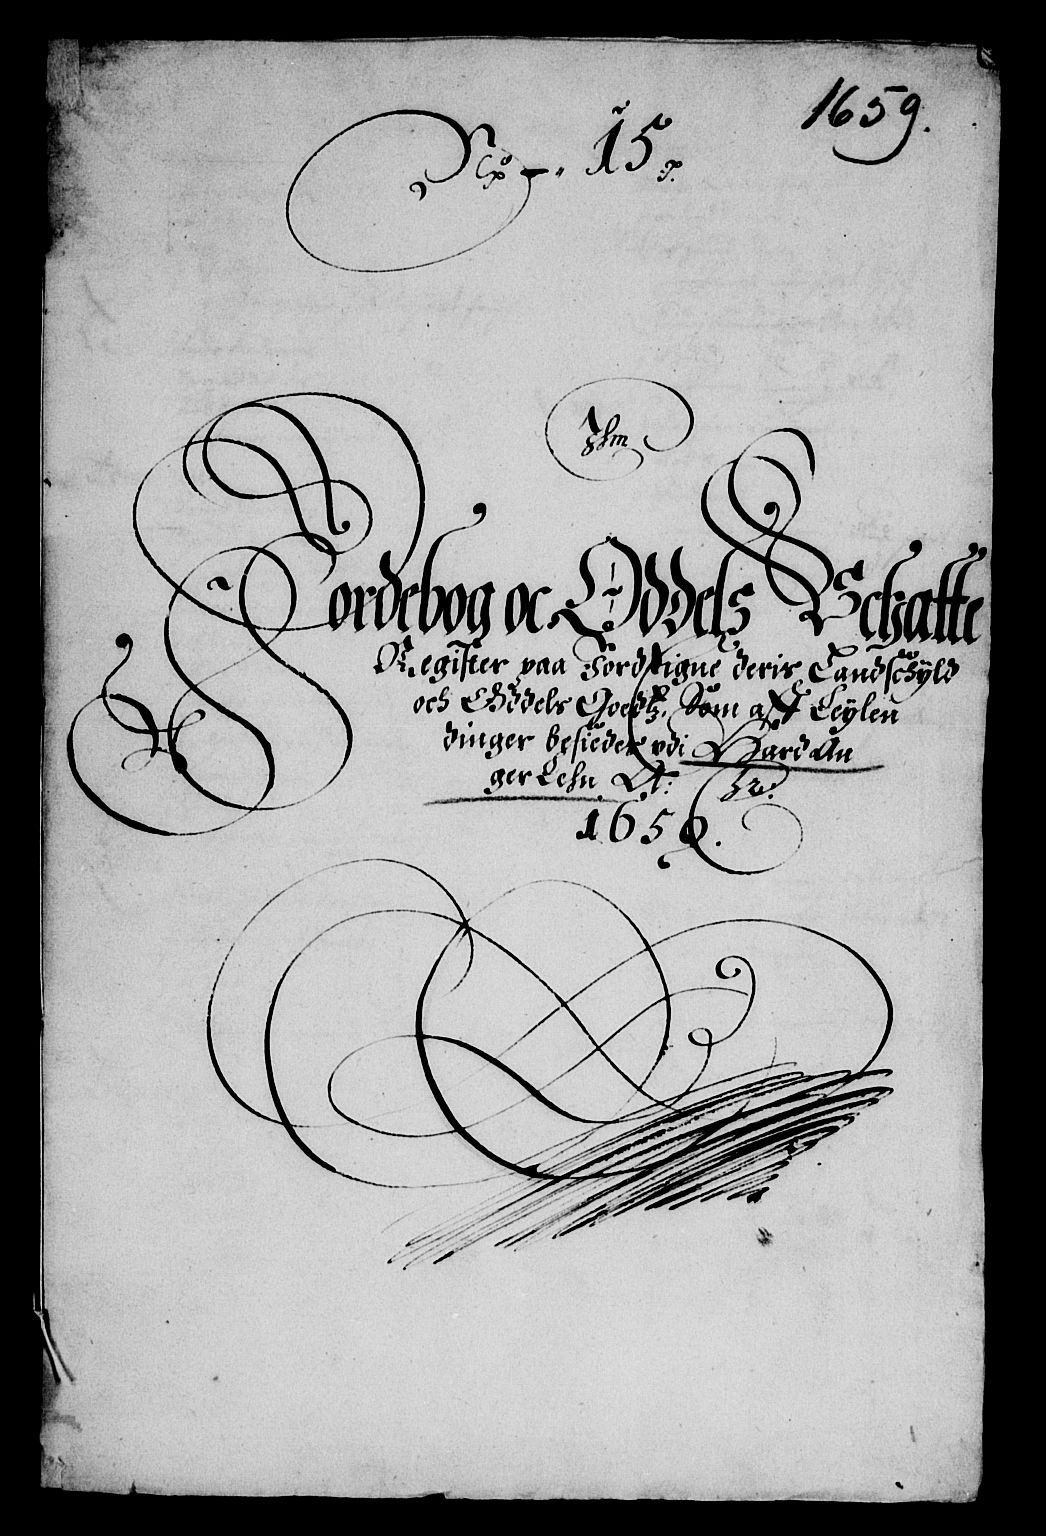 1659.
No. 15
Jordebog oc Oddels Schatte
Register paa Jorddrigne deris Landschyld
och Oddels Goedtz, Som aff Leylen
dinger besieder vdi Hardan
ger Lehn A:
1659.